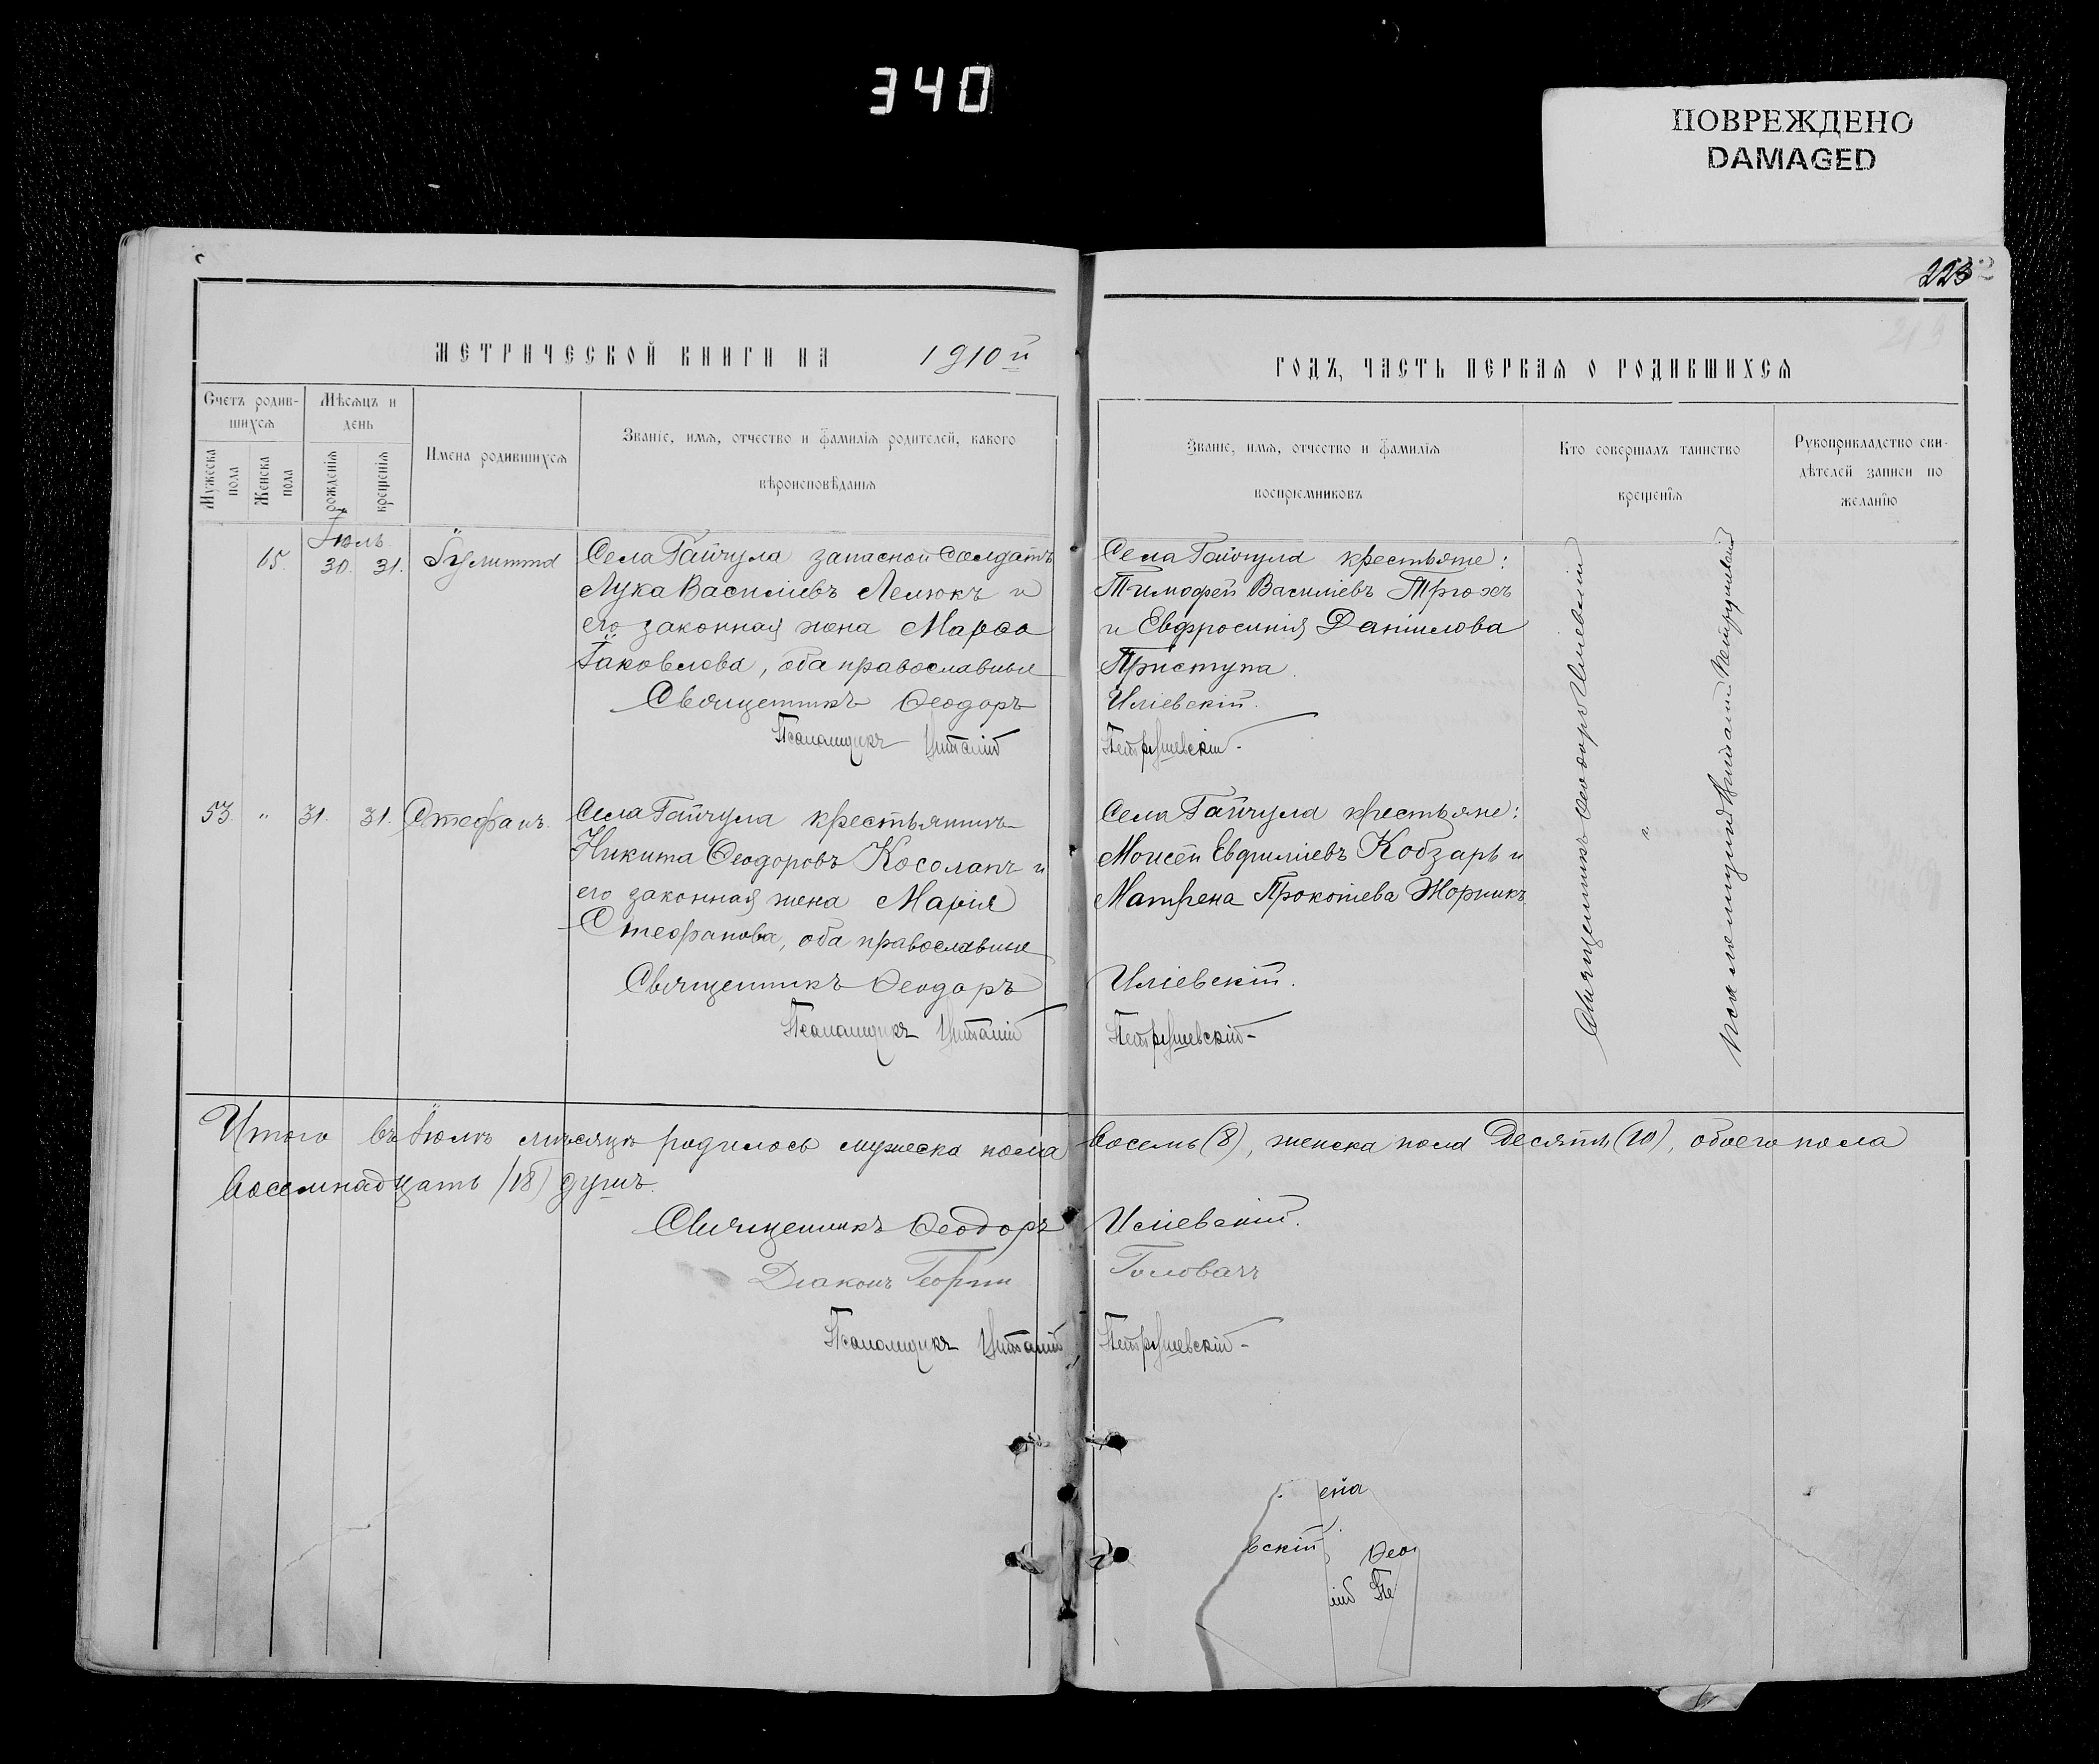 340
ПОВРЕЖДЕНО
DAMAGED
223
МЕТРИЧЕСКОЙ КНИГИ НА 1910й
ГОДЪ, ЧАСТЬ ПЕРВАЯ О РОДИВШИХСЯ
Счетъ родив-
шихся
Мужеска пола
Женска пола
Мѣсяцъ и
день
рожденія
крещенія
Имена родившихся
Званіе, имя, отчество и фамилія родителей, какого
вѣроисповѣданія
Званіе, имя, отчество и фамилія
воспріемниковъ
Кто совершалъ таинство
крещенія
Рукоприкладство сви-
дѣтелей записи по
желанію
Іюль
65. 30. 31. Іулитта
Села Гайчула запасной солдатъ
Лука Василіевъ Лелюкъ и
его законная жена Марѳа
Іаковлева, оба православные
Священникъ Ѳеодоръ Иліевскій.
Псаломщикъ Виталій Петрушевскій-
Села Гайчула крестьяне:
Тимофей Василіевъ Трюхъ
и Евфросинія Даніилова
Приступа.
53. " 31. 31. Стефанъ.
Села Гайчула крестьянинъ
Никита Ѳеодоровъ Косолапъ и
его законная жена Марія
Стефанова, оба православные
Священникъ Ѳеодоръ Иліевскій.
Псаломщикъ Виталій Петрушевскій-
Села Гайчула крестьяне:
Моисей Евфиміевъ Кобзарь и
Матрена Прокопіева Жорникъ
Священникъ Ѳеодоръ Иліевскій
"
Псаломщикъ Виталій Петрушевскій
Итого въ Іюлѣ мѣсяцѣ родилось мужеска пола восемь (8), женска пола десять (10), обоего пола
восемнадцать (18) душъ.
Священникъ Ѳеодоръ Иліевскій.
Діаконъ Георгій Головачъ
Псаломщикъ Виталій Петрушевскій-
ена
вскій Ѳео
ій Пе